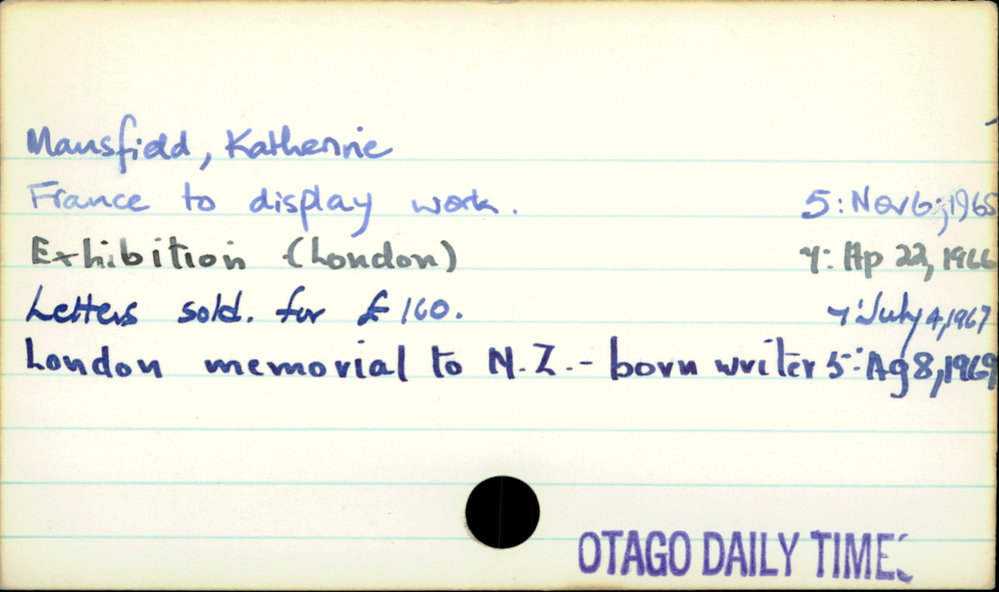 Mansfield, Katherine
France to display work. 5: Nov 6, 1965
Exhibition (London) 4: Ap 22, 1966
Letters sold. for £160. 4: July 4, 1967
London memorial to N.Z.-born writer 5: Ag 8, 1969
OTAGO DAILY TIMES